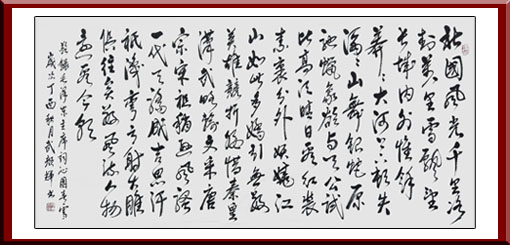 北國風光千里冰
封萬里雪飄望
長城內外惟餘
莽々大河上下頓失
滔々山舞銀蛇原
馳蠟象欲與天公試
比高須晴日看紅裝
素裹分外妖嬈江
山如此多嬌引無數
英雄競折腰惜秦皇
漢武略輸文采唐
宗宋祖稍遜風騷
一代天驕成吉思汗
祇識彎弓射大雕
俱往矣數風流人物
還看今朝
錄毛澤東主席詞沁園春雪
歲次丁酉秋月武 輝書